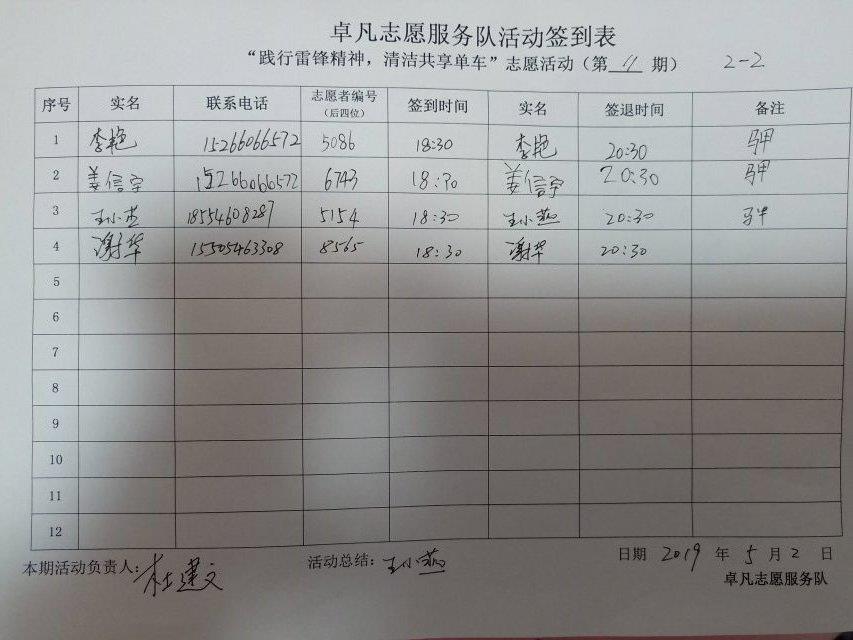 卓凡志愿服务队活动签到表
“践行雷锋精神，清洁共享单车”志愿活动（第 11 期） 2-2
序号 实名 联系电话 志愿者编号（后四位） 签到时间 实名 签退时间 备注
1 李艳 15266066572 5086 18:30 李艳 20:30
2 姜信宇 15266066572 6743 18:30 姜信宇 20:30
3 王小燕 18554608287 5154 18:30 王小燕 20:30
4 谢华 15505463308 8565 18:30 谢华 20:30
5
6
7
8
9
10
11
12
本期活动负责人：杜建文 活动总结：王小燕 日期 2019 年 5 月 2 日
卓凡志愿服务队